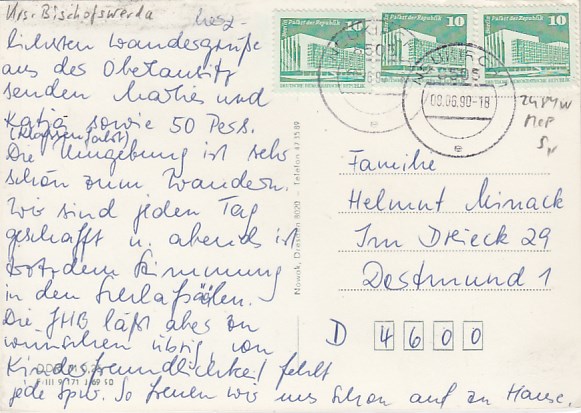 Krs. Bischofswerda
herz-
lichsten Wandesgrüße
aus der Oberlausitz
senden Mathes und
Katja sowie 50 Pers.
(Klassenfahrt)
Die Umgebung ist sehr
schön zum Wandern.
Wir sind jeden Tag
geschafft u. abends ist
trotzdem Stimmung
in den Schlafsälen.
Die JHB läßt aber zu
wünschen übrig, von
Kinderfreundlichkeit fehlt
jede Spur. So freuen wir uns schon auf zu Hause.
Berlin Palast der Republik 10
Berlin Palast der Republik 10
Berlin Palast der Republik 10
DEUTSCHE DEMOKRATISCHE REPUBLIK
NEUKIRCH
8505
08.06.90-18
e
24 PMW
MeP
Familie
Helmut Minack
Im Dreieck 29
Dortmund 1
D 4600
Nowak, Dresden 8020 - Telefon 47 15 89
III 9 171 J 69 90